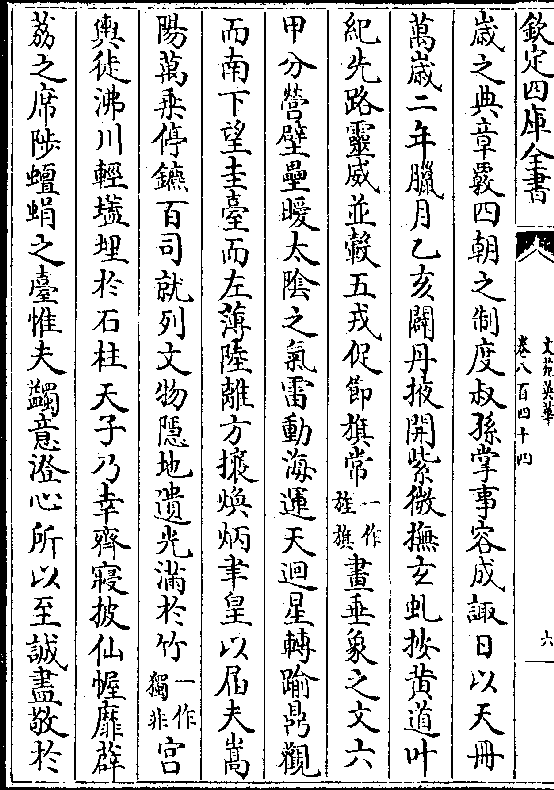 欽定四庫全書
文苑英華
卷八百四十四
六
歲之典章覈四朝之制度叔孫掌事容成諏日以天冊
萬歲二年臘月乙亥闢丹掖開紫微撫玄虬按黄道叶
紀先路靈威並轂五戎促節旗常一作旌旗畫垂象之文六
甲分營壁壘暖太陰之氣雷動海運天迴星轉踰鼎觀
而南下望圭臺而左薄陸離方攘煥炳聿皇以屆夫嵩
陽萬乗停鑣百司就列文物隱地遺光滿於竹一作獨非宫
輿徒沸川輕壒埋於石柱天子乃幸齊寢披仙幄靡薜
荔之席陟蟺蜎之臺惟夫蠲意澄心所以至誠盡敬於